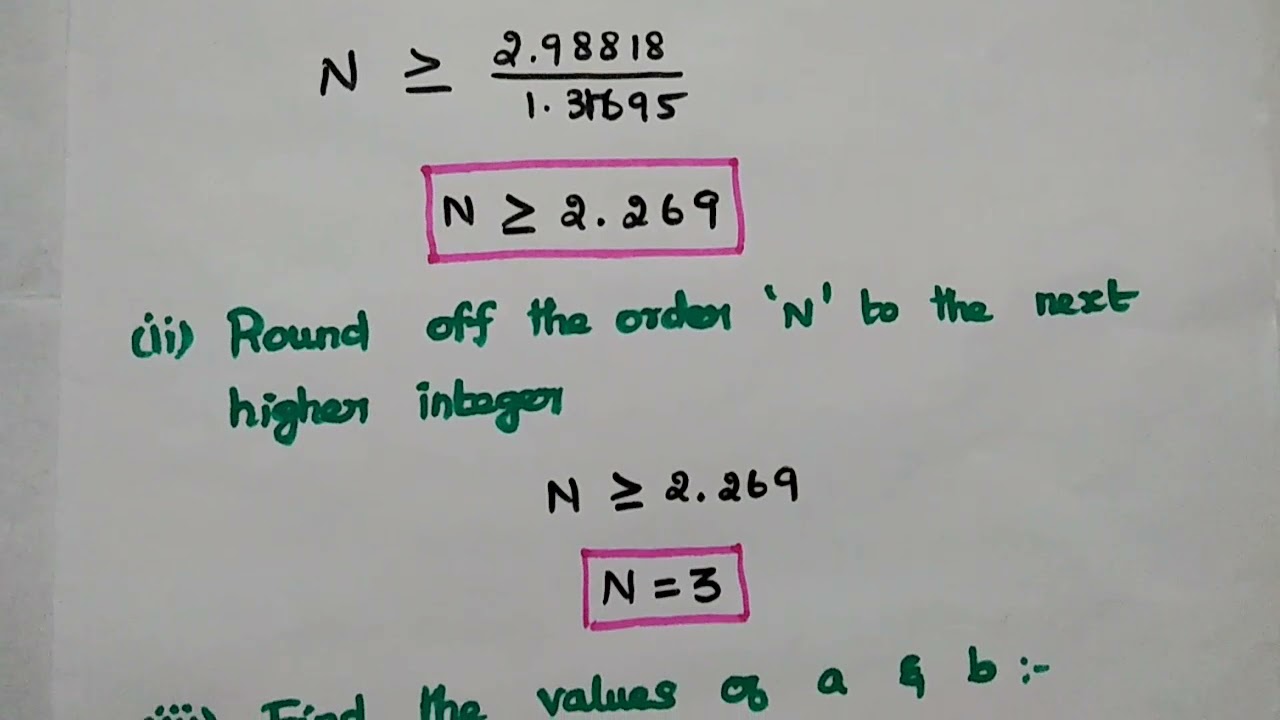 N ≥ 2.98818
1.31695
N ≥ 2.269
(ii) Round off the order 'N' to the next
higher integer
N ≥ 2.269
N = 3
(iii) Find the values of a & b :-